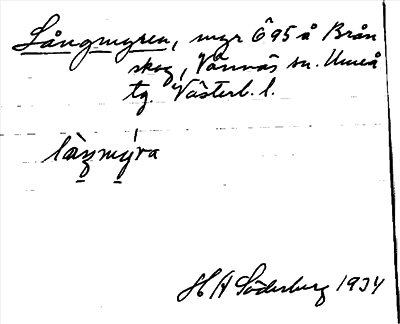 Långmyren, myr Ö 95 å Brån
skog, Vännäs sn. Umeå
tg. Västerb. l.
làŋmý̱ra
H A Söderberg 1934